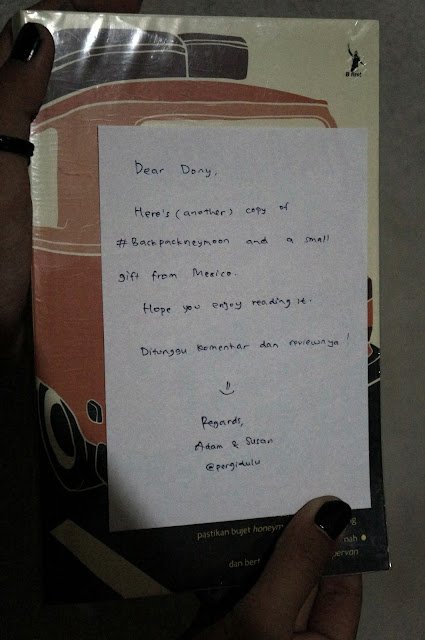 B first
Dear Dony,
Here's (another) copy of
#Backpackneymoon and a small
gift from Mexico.
Hope you enjoy reading it.
Ditunggu komentar dan reviewnya!
Regards,
Adam & Susan
@pergidulu
pastikan bujet honeym
nah
dan ber
pervan